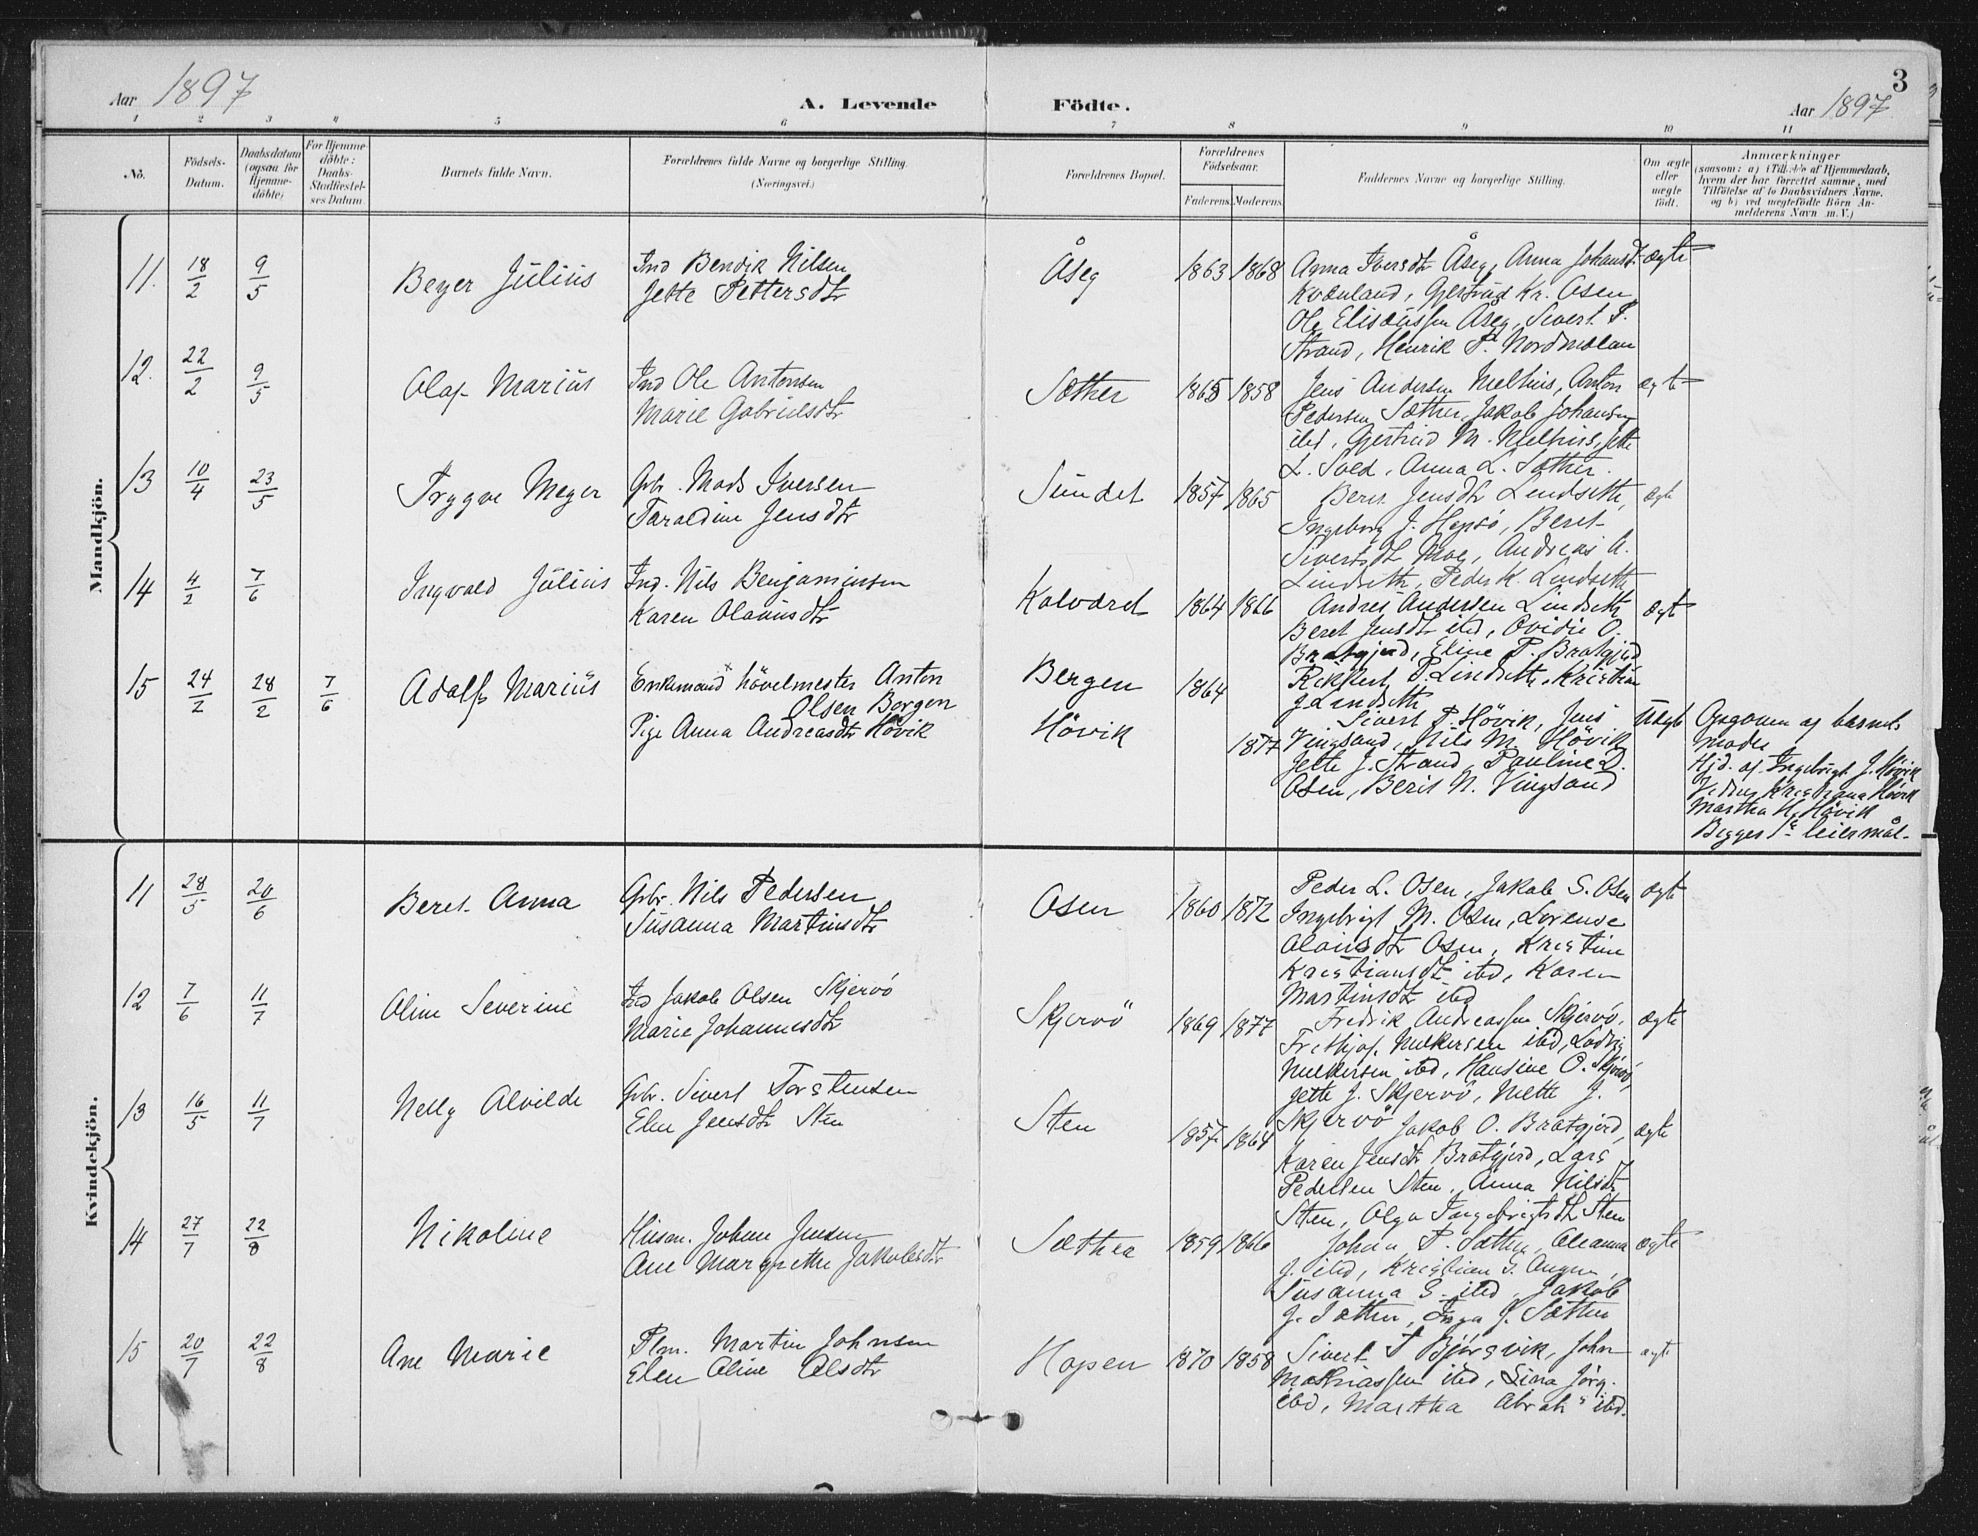 Aar 1897
A. Levende Födte.
3
Aar 1897
1 2 3 4 5 6 7 8 9 10 11
No.
Födsels-
Datum.
Daabsdatum
(ogsaa for
Hjemme-
döbte)
For Hjemme-
döbte:
Daabs-
Stadfæstel-
ses Datum.
Barnets fulde Navn.
Forældrenes fulde Navne og borgerlige Stilling.
(Næringsvei.)
Forældrenes Bopæl.
Forældrenes
Födselsaar.
Faderens. Moderens.
Faddernes Navne og borgerlige Stilling.
Om ægte
eller
uægte
födt.
Anmærkninger
(saasom: a) (Tilfælde af Hjemmedaab,
hvem der har forrettet samme, med
Tilföielse af to Daabsvidners Navne.
og b) ved uægtefödte Börn An-
melderens Navn m. V.)
Mandkjön.
11. 18/2 9/5 Beyer Julius
Ind Bendik Nilsen
Jette Pettersdtr
Åseg 1863 1868
Anna Iversdtr Åseg, Anna Johansdt.
Kvænland, Gjertrud Kr. Osen
Ole Elisæussen Aseg, Sivert P.
Strand, Henrik P. Nordmelan
ægte
12. 22/2 9/5 Olaf Marius
Ind Ole Antonsen
Marie Gabrielsdtr
Sæther 1865 1858
Jens Andersen Melhus, Anton
Pedersen Sæther, Jakob Johansen
ibd, Gjertrud M. Melhus, Jette
L. Sved, Anna L. Sæther.
ægte
13 10/4 23/5 Trygve Meyer
Gbr. Mads Iversen
Taraldine Jensdtr
Sundet 1857 1865
Beret Jensdtr Lindseth,
Ingeborg J. Hepsö, Beret
Sivertsdtr Moe, Andreas A.
Lindseth, Peder K. Lindseth
ægt
14 4/2 7/6 Ingvald Julius
Ind. Nils Benjaminsen
Karen Olausdtr
Kalvåret 1864 1866
Andreas Andersen Lindseth
Beret Jensdtr ibd, Ovidie O.
Bratgjerd, Eline P. Bratgjerd
Rikkert P. Lindseth, Kristian
J. Lindseth
ægt
15 24/2 28/2 7/6 Adolf Marius
Enkemand hövelmester Anton
Olsen Bergen
Pige Anna Andreasdtr Hövik
Bergen
Hövik
1864
1877
Sivert P. Hövik, Jens
Vingsand, Nils M. Hövik
Jette J. Strand, Pauline D.
Osen, Berit N. Vingsand
Uægte
Opgaven af barnets
moder
Hjd. af Ingebrigt J. Hövik
Vidner Kristiana Hövik
Martha H. Hövik
Begges 1ste leiermål.
Kvindekjön.
11 28/5 20/6 Beret Anna
Gbr. Nils Pedersen
Susanna Martinsdtr
Osen 1860 1872
Peder L. Osen, Jakob S. Osen
Ingebrigt M. Osen, Lorense
Olausdtr Osen, Kristine
Kristiansdt ibd, Karen
Martinsdt ibd
ægte
12 7/6 11/7 Oline Severine
Ind Jakob Olsen Skjervö
Marie Johannesdtr
Skjervö 1869 1877
Fredrik Andreassen Skjervö,
Frithjof Melkersen ibd, Ludvig
Melkersen ibd, Hansine O. Skjervö,
Jette J. Skjervö, Mette J.
Skjervö
ægte
13 16/5 11/7 Nelly Alvilde
Gbr. Sivert Torstensen
Elen Jensdtr Sten
Sten 1857 1864
Jakob O. Bratgjerd,
Karen Jensdtr Bratgjerd, Lars
Pedersen Sten, Anna Nilsdtr
Sten, Olga Ingebrigtsdt Sten
ægte
14 27/7 22/8 Nikoline
Husm. Johan Jensen
Ane Margrethe Jakobsdtr
Sæther 1859 1866
Johan P. Sæther, Oleanna
J. ibd, Kristian S. Angen,
Susanna S. ibd, Jakob
J. Sæther, Inga J. Sæther
ægte
15 20/7 22/8 Ane Marie
Plm. Martin Johnsen
Elen Oline Olsdtr
Hopen 1870 1858
Sivert T Bjørgvik, John
Mathiassen ibd, Lina Jörg.
ibd, Martha Abrah. ibd.
ægte